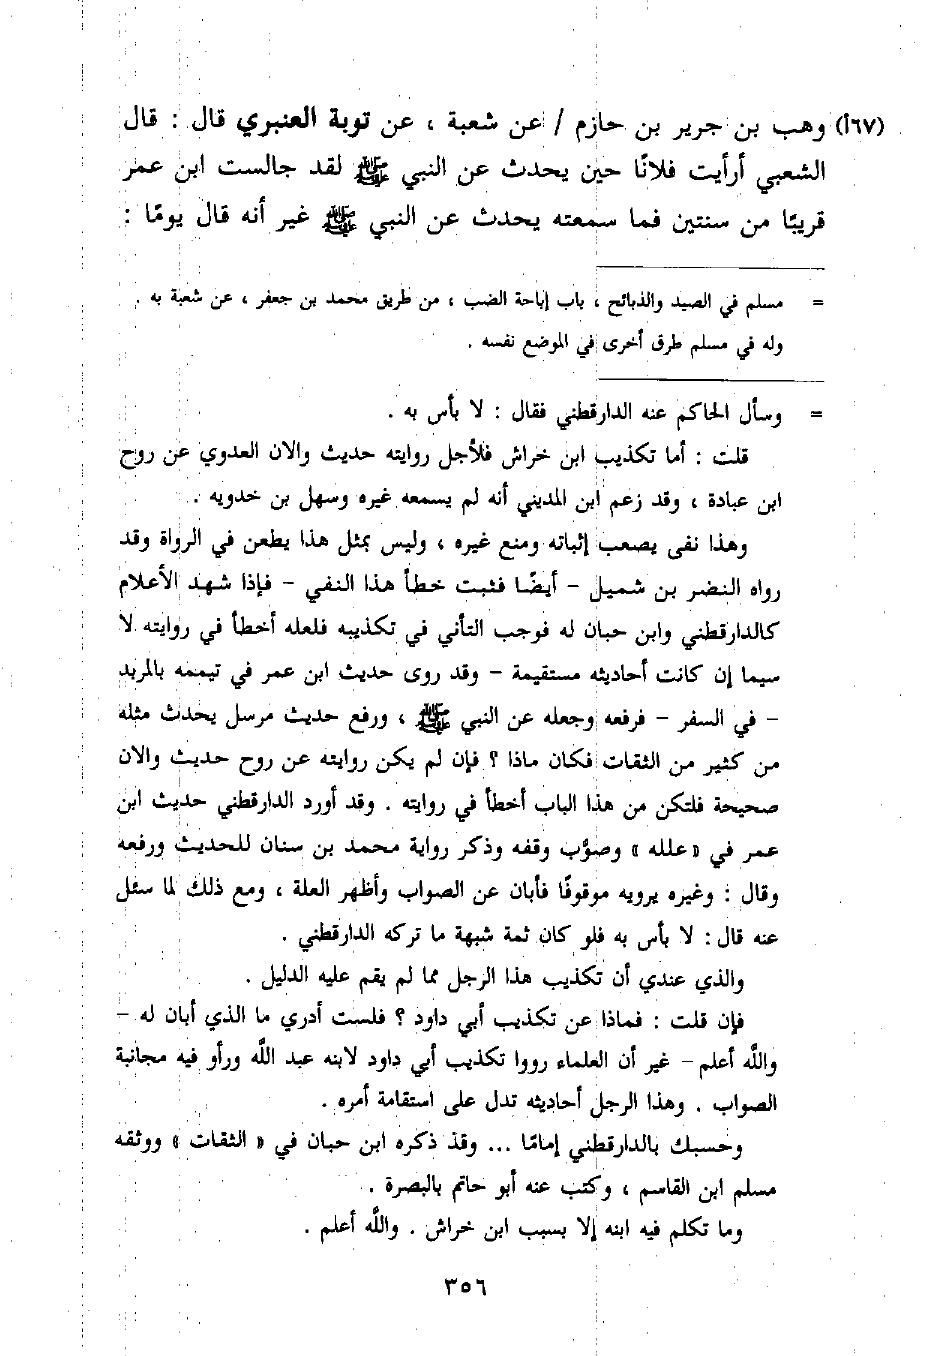 (٦٧أ) وهب بن جرير بن حازم / عن شعبة ، عن توبة العنبري قال : قال
الشعبي أرأيت فلانًا حين يحدث عن النبي ﷺ لقد جالست ابن عمر
قريبًا من سنتين فما سمعته يحدث عن النبي ﷺ غير أنه قال يومًا :
= مسلم في الصيد والذبائح ، باب إباحة الضب ، من طريق محمد بن جعفر ، عن شعبة به .
وله في مسلم طرق أخرى في الموضع نفسه .
= وسأل الحاكم عنه الدارقطني فقال : لا بأس به .
قلت : أما تكذيب ابن خراش فلأجل روايته حديث والان العدوي عن روح
ابن عبادة ، وقد زعم ابن المديني أنه لم يسمعه غيره وسهل بن خدويه .
وهذا نفى يصعب إثباته ومنع غيره ، وليس بمثل هذا يطعن في الرواة وقد
رواه النضر بن شميل - أيضًا فثبت خطأ هذا النفي - فإذا شهد الأعلام
كالدارقطني وابن حبان له فوجب التأني في تكذيبه فلعله أخطأ في روايته لا
سيما إن كانت أحاديثه مستقيمة - وقد روى حديث ابن عمر في تيممه بالمربد
- في السفر - فرفعه وجعله عن النبي ﷺ ، ورفع حديث مرسل يحدث مثله
من كثير من الثقات فكان ماذا ؟ فإن لم يكن روايته عن روح حديث والان
صحيحة فلتكن من هذا الباب أخطأ في روايته . وقد أورد الدارقطني حديث ابن
عمر في « علله » وصوَّب وقفه وذكر رواية محمد بن سنان للحديث ورفعه
وقال : وغيره يرويه موقوفًا فأبان عن الصواب وأظهر العلة ، ومع ذلك لما سئل
عنه قال : لا بأس به فلو كان ثمة شبهة ما تركه الدارقطني .
والذي عندي أن تكذيب هذا الرجل مما لم يقم عليه الدليل .
فإن قلت : فماذا عن تكذيب أبي داود ؟ فلست أدري ما الذي أبان له -
واللَّه أعلم - غير أن العلماء رووا تكذيب أبي داود لابنه عبد اللَّه ورأو فيه مجانبة
الصواب . وهذا الرجل أحاديثه تدل على استقامة أمره .
وحسبك بالدارقطني إمامًا ... وقد ذكره ابن حبان في « الثقات » ووثقه
مسلم ابن القاسم ، وكتب عنه أبو حاتم بالبصرة .
وما تكلم فيه ابنه إلا بسبب ابن خراش . واللَّه أعلم .
٣٥٦